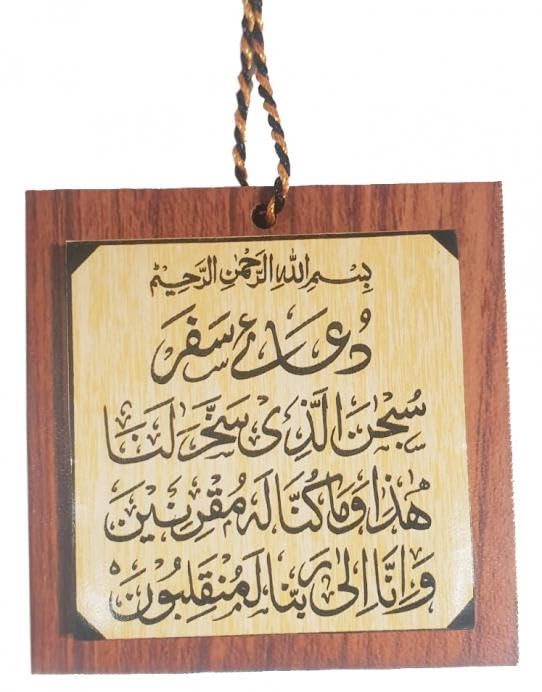 بِسْمِ اللهِ الرَّحْمٰنِ الرَّحِيْمِ
دُعَائے سَفَر
سُبْحٰنَ الَّذِىْ سَخَّرَ لَنَا
هٰذَا وَمَا كُنَّا لَهٗ مُقْرِنِيْنَ
وَاِنَّا اِلٰى رَبِّنَا لَمُنْقَلِبُوْنَ